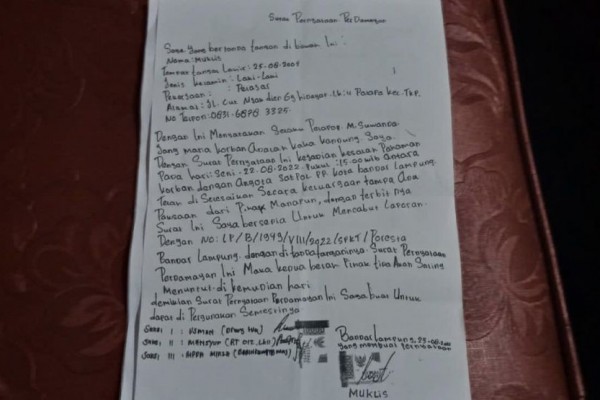 Surat Pernyataan Perdamaian
Saya yang bertanda tangan di bawah Ini :
Nama : Mukus
Tempat tanggal Lahir : 25-08-2001
Jenis kelamin : Laki-Laki
Pekerjaan : Pelajar
Alamat : JL. Cut Nyak dien Gg
No Telpon : 0831-6875 3325
Dengan Ini Menyatakan Selaku Pelapor M. Sumanda
Yang mana korban Adalah kaka kandung Saya
Dengan Surat Pernyataan Ini kejadian kesalah Pahaman
Pada hari : Seni - 22-08-2022 Pukul : 15.00 wib antara
korban dengan Angota Satpol PP kota bandar Lampung.
Telah di Selesaikan Secara keluargaan tampa Ada
Paksaan dari Pihak Manapun, dengan terbit nya
Surat Ini Saya bersedia Untuk Mencabut Laporan.
Dengan No : LP/B/1949/VIII/2022/SPKT/Polresta
Bandar Lampung. dengan di tanda tanganinya Surat Pernyataan
Perdamayan Ini Maka kedua belah Pihak tida Akan Saling
Menuntut di kemudian hari
demikian Surat Pernyataan Perdamayan Ini Saya buat Untuk
dapat di Pergunakan Semestinya
Saksi I :
Saksi II :
Saksi III :
Bandar Lampung, 29-08-2022
Yang membuat Pernyataan
MUKUS